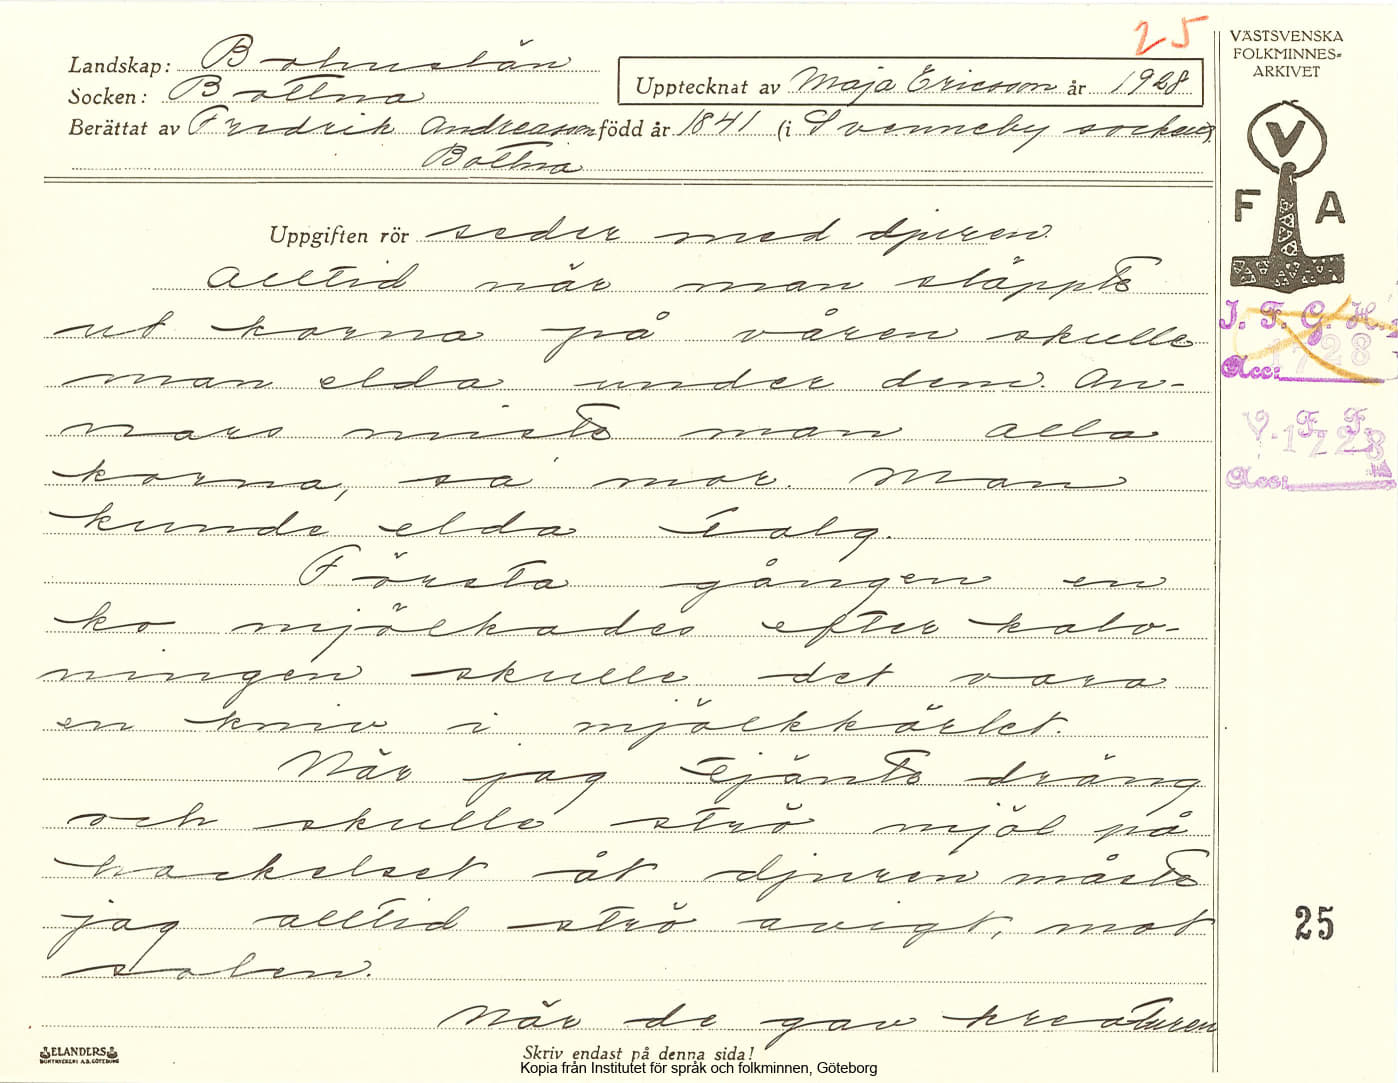 25
Landskap: Bohuslän
Socken: Bottna
Upptecknat av Maja Ericsson år 1928
Berättat av Fredrik Andreasson född år 1841 (i Svenneby socken).
Bottna
VÄSTSVENSKA
FOLKMINNES=
ARKIVET
V
F A
Uppgiften rör seder med djuren.
Alltid när man släppte
ut korna på våren skulle
man elda under dem. An-
nars miste man alla
korna, sa mor. Man
kunde elda talg.
Första gången en
ko mjölkades efter kalv-
ningen skulle det vara
en kniv i mjölkkärlet.
När jag tjänte dräng
och skulle strö mjöl på
hackelset åt djuren måste
jag alltid strö avigt, mot
solen.
När de gav kreaturen
I. F. G. H.
1728
Acc:
V. F. F.
1728
Acc:
25
ELANDERS
BOKTRYCKERI A.B. GÖTEBORG
Skriv endast på denna sida!
Kopia från Institutet för språk och folkminnen, Göteborg